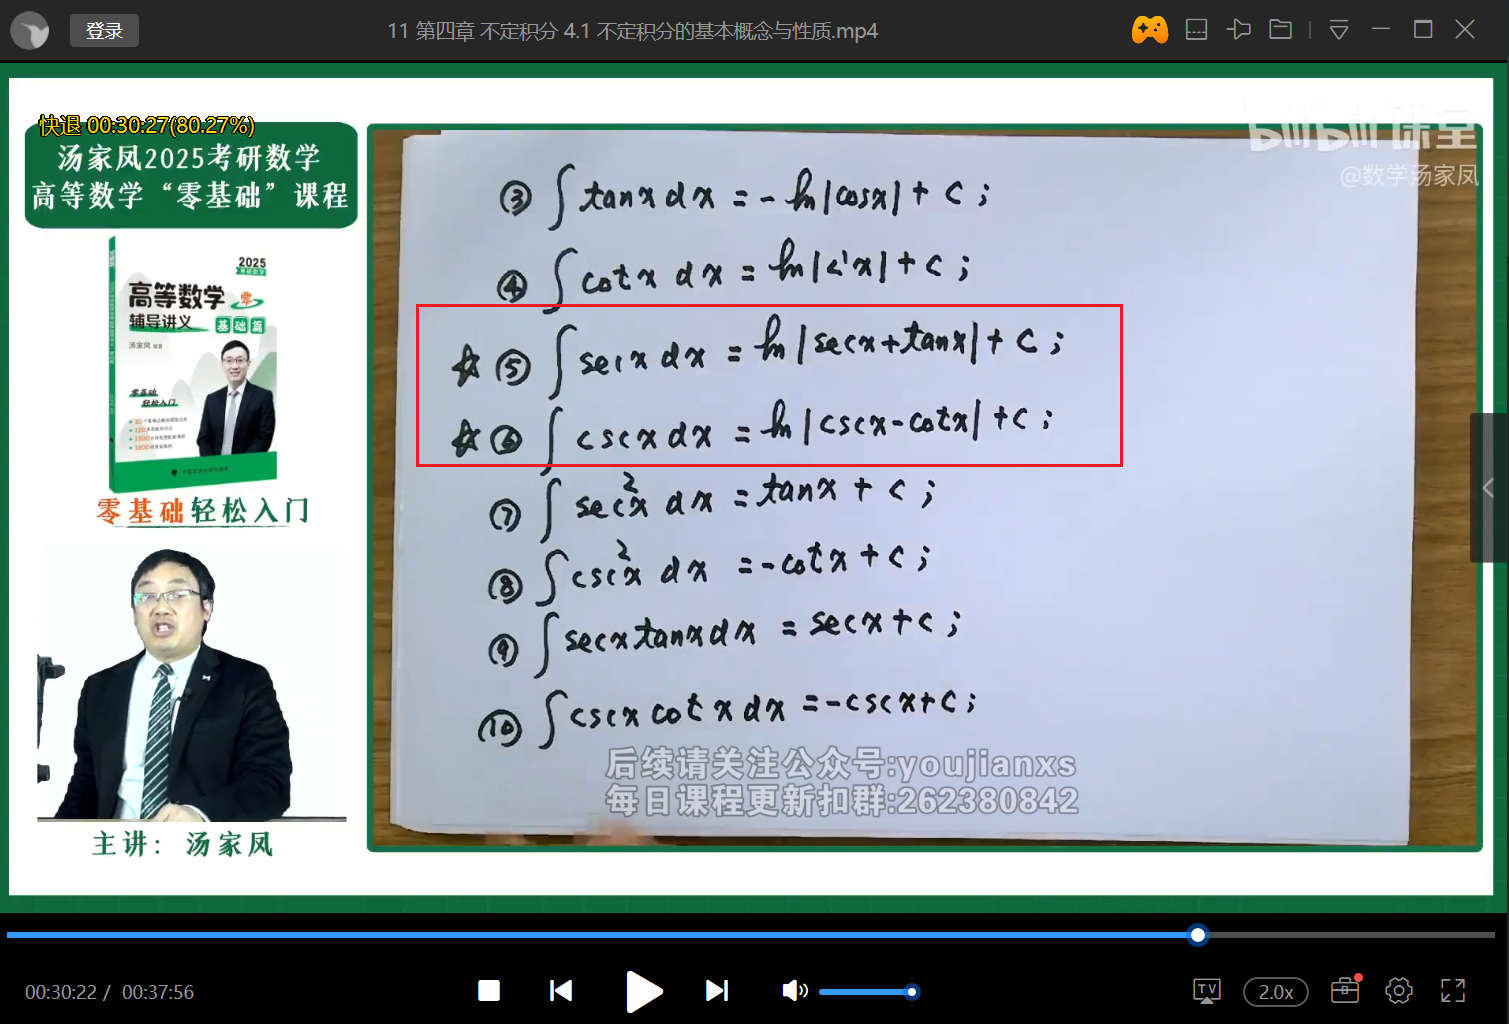 登录
11 第四章 不定积分 4.1 不定积分的基本概念与性质.mp4
快退 00:30:27(80.27%)
汤家凤2025考研数学
高等数学“零基础”课程
2025
考研数学
高等数学 零
辅导讲义 基础篇
汤家凤 编著
零基础
轻松入门
零基础轻松入门
主讲：汤家凤
bilibili 课堂
@数学汤家凤
③ ∫ tanx dx = -ln|cosx| + C ;
④ ∫ cotx dx = ln|sinx| + C ;
☆ ⑤ ∫ secx dx = ln|secx+tanx| + C ;
☆ ⑥ ∫ cscx dx = ln|cscx-cotx| + C ;
⑦ ∫ sec²x dx = tanx + C ;
⑧ ∫ csc²x dx = -cotx + C ;
⑨ ∫ secx tanx dx = secx + C ;
⑩ ∫ cscx cotx dx = -cscx + C ;
后续请关注公众号:youjianxs
每日课程更新扣群:262380842
00:30:22 / 00:37:56
TV
2.0x